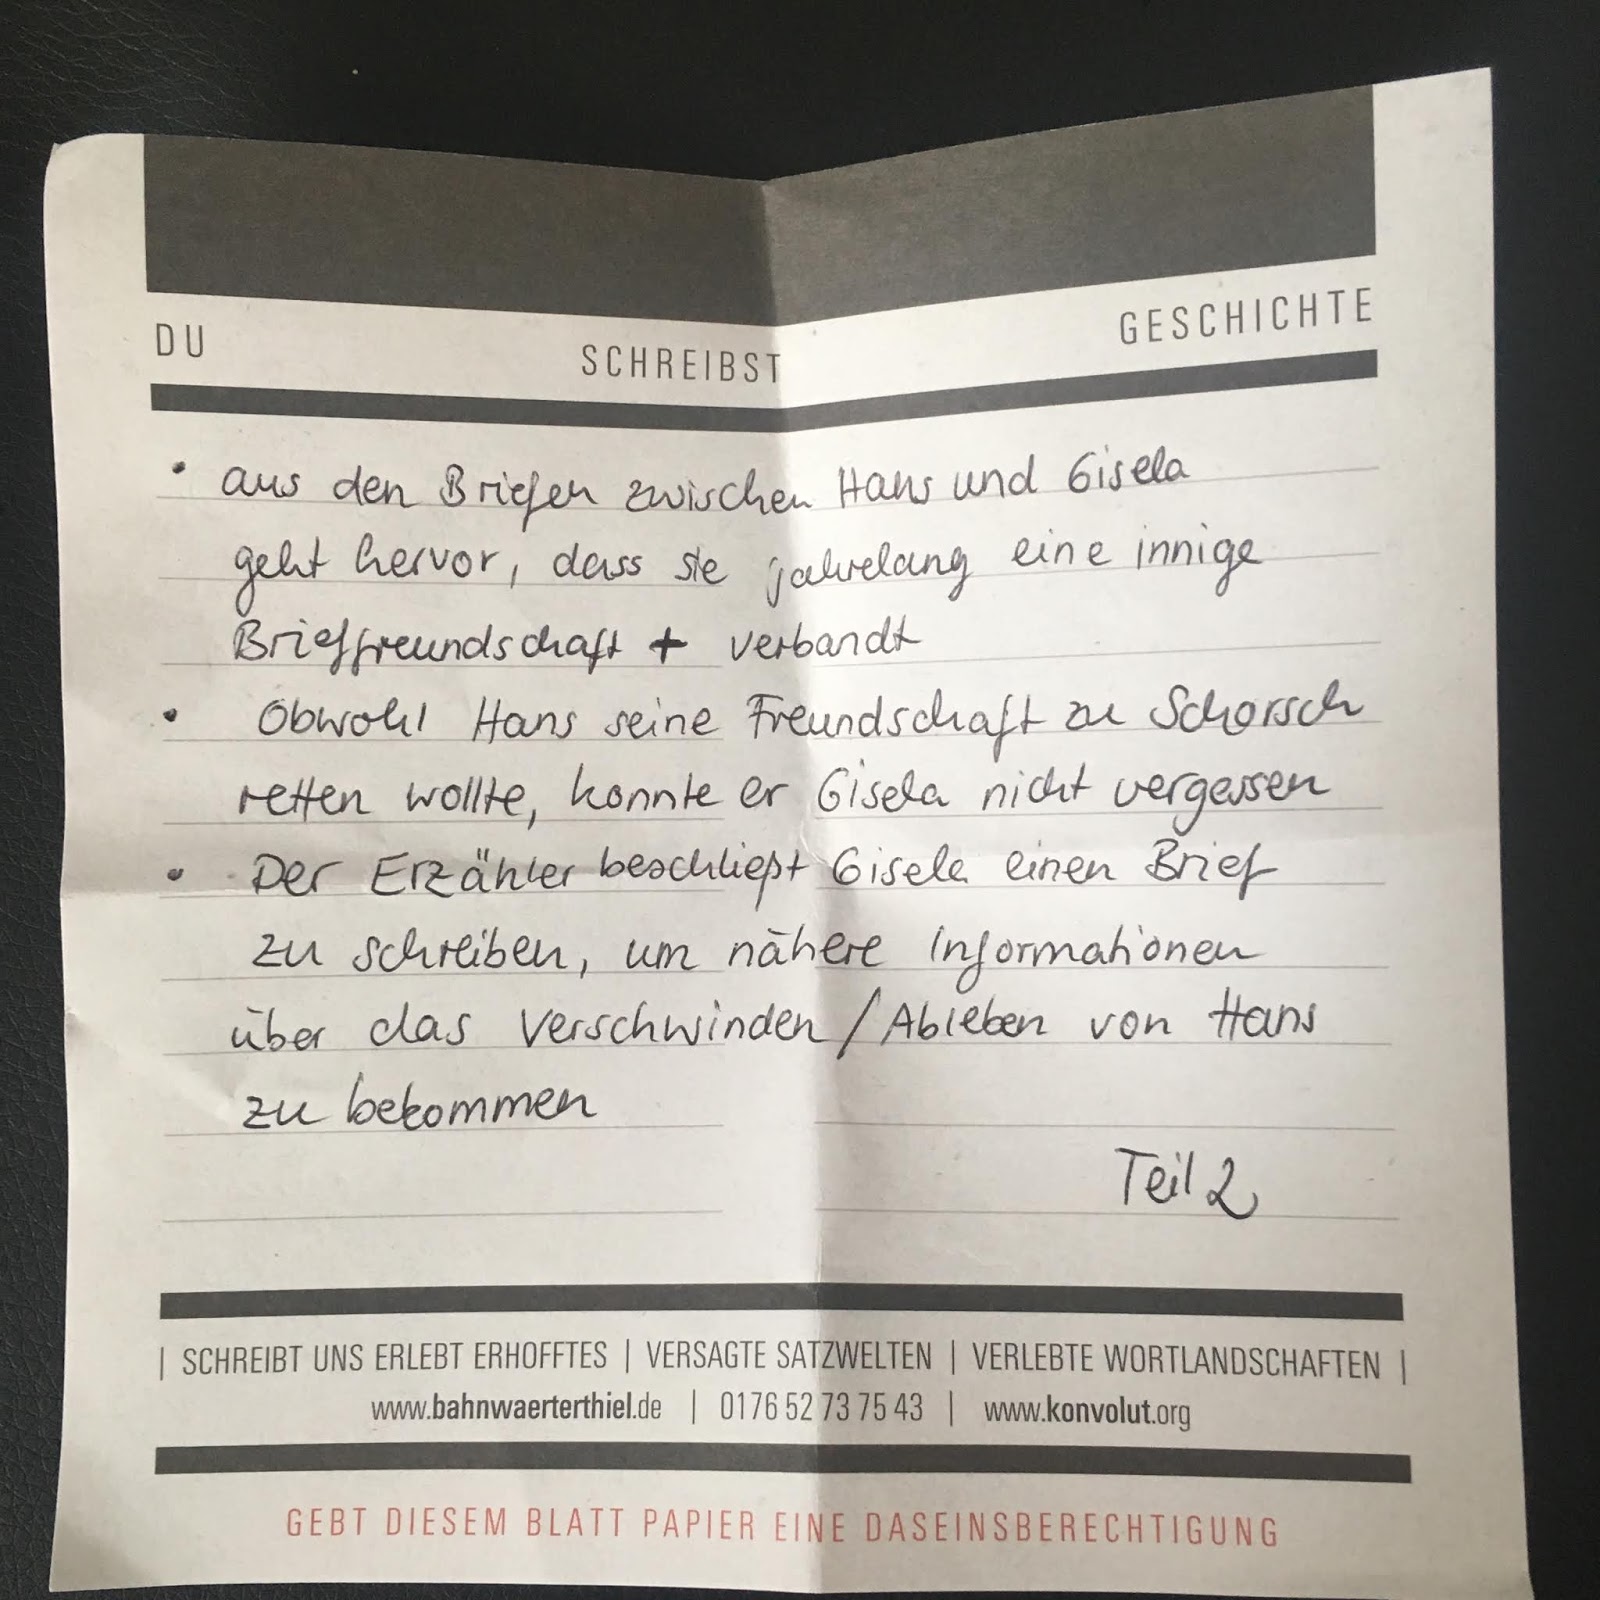 DU SCHREIBST GESCHICHTE
• aus den Briefen zwischen Hans und Gisela
geht hervor, dass sie jahrelang eine innige
Brieffreundschaft + verbandt
• Obwohl Hans seine Freundschaft zu Schorsch
retten wollte, konnte er Gisela nicht vergessen
• Der Erzähler beschließt Gisela einen Brief
zu schreiben, um nähere Informationen
über das Verschwinden/Ableben von Hans
zu bekommen
Teil 2
| SCHREIBT UNS ERLEBT ERHOFFTES | VERSAGTE SATZWELTEN | VERLEBTE WORTLANDSCHAFTEN |
www.bahnwaerterthiel.de | 0176 52 73 75 43 | www.konvolut.org
GEBT DIESEM BLATT PAPIER EINE DASEINSBERECHTIGUNG